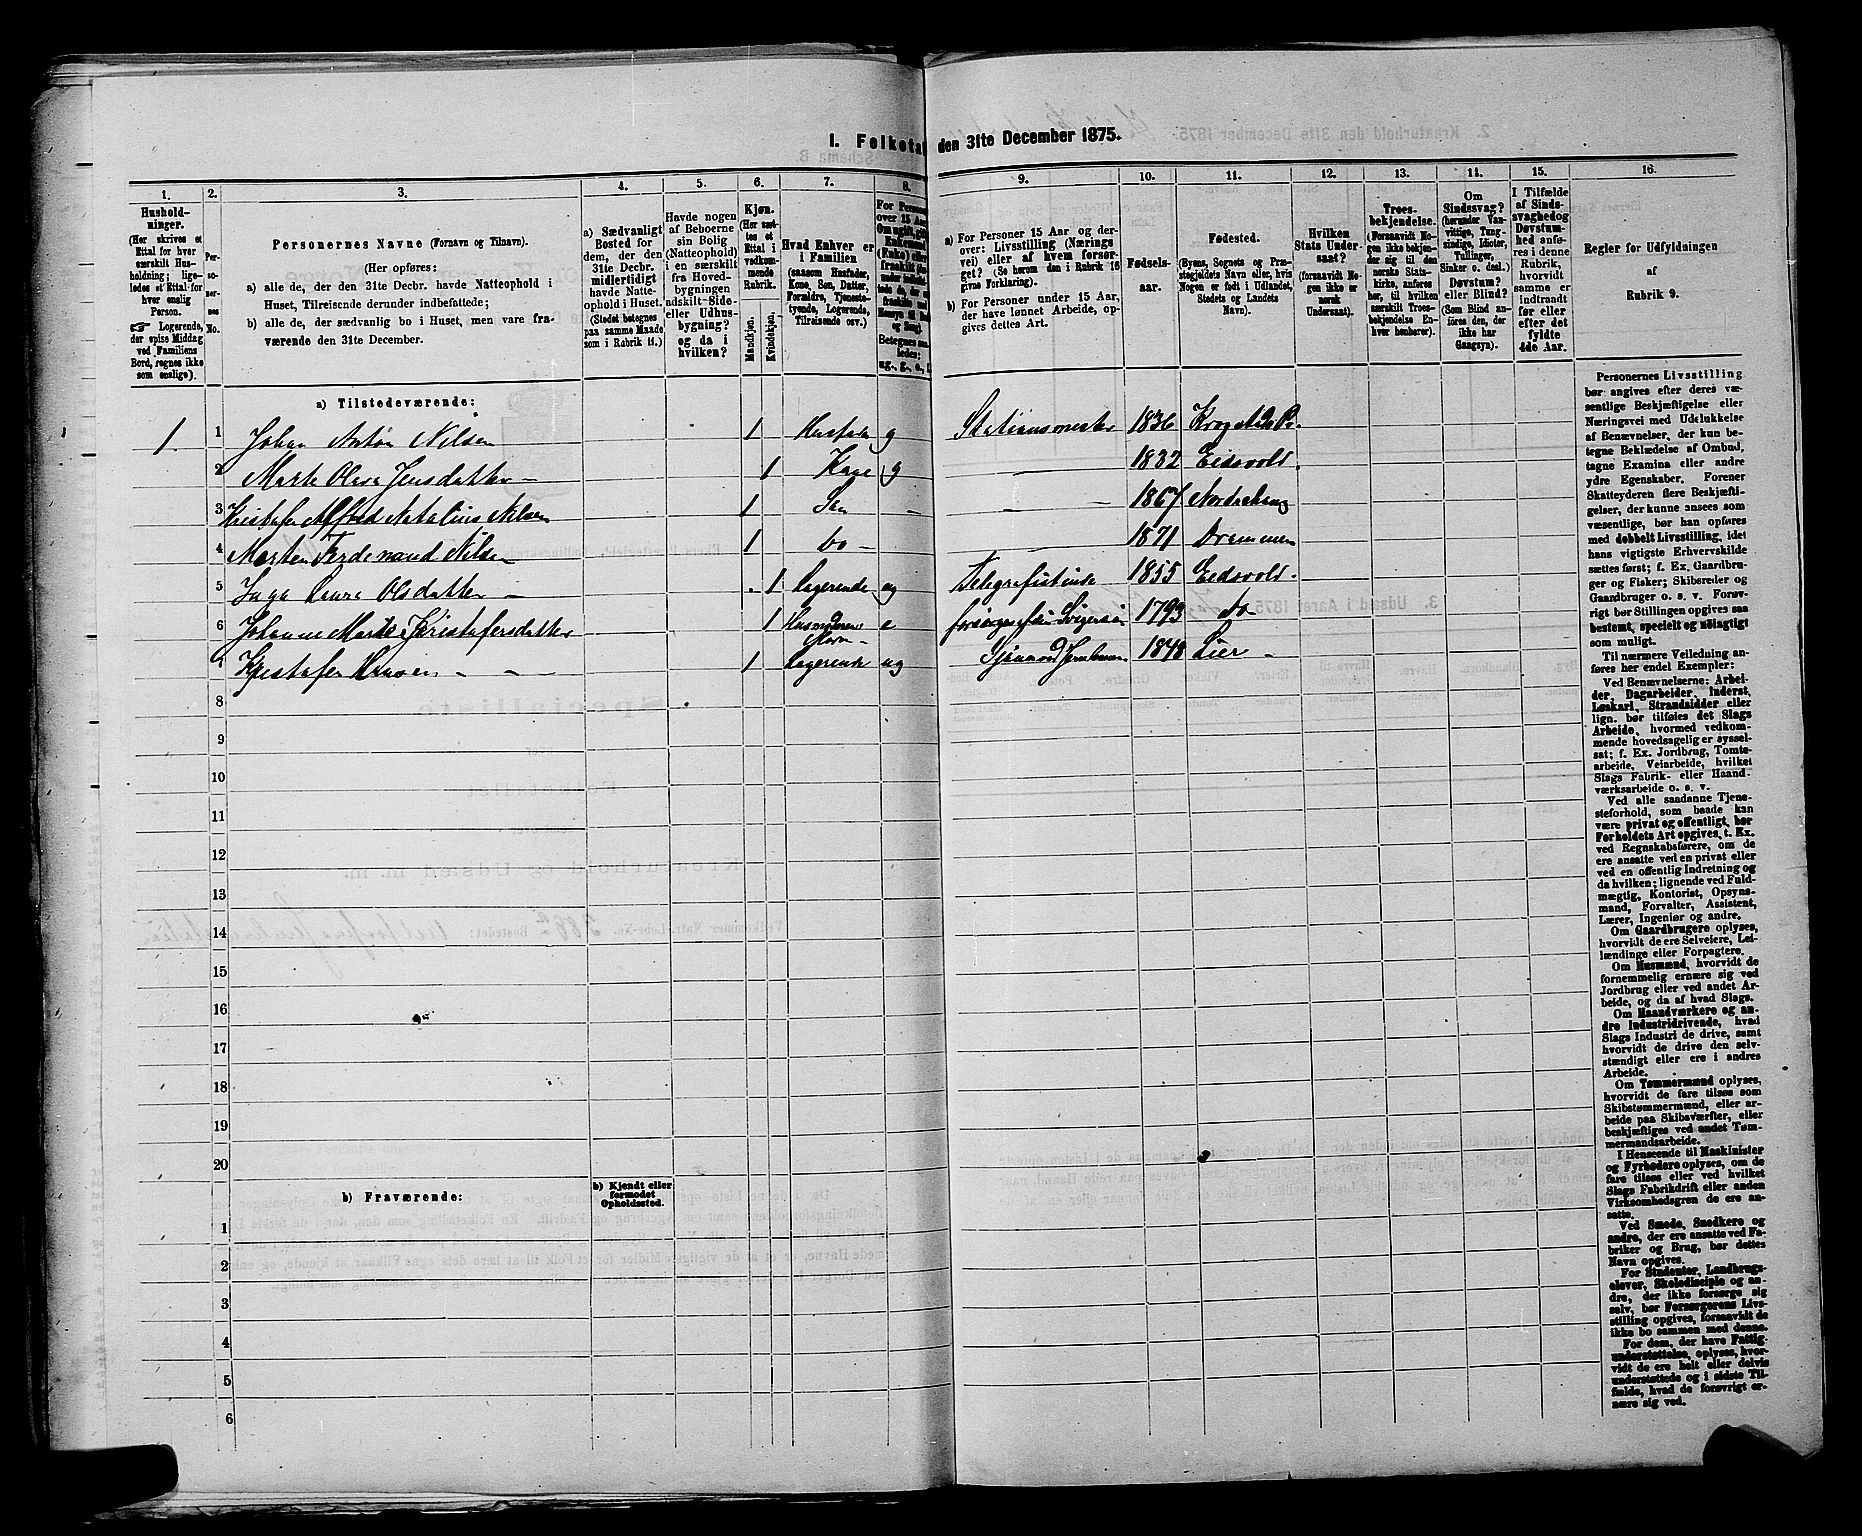 I. Folketæ
den 31te December 1875.
1.
2.
3.
4.
5.
6.
7.
8.
9.
10.
11.
12.
13.
14.
15.
16.
Hushold-
ninger.
(Her skrives et
Ettal for hver
særskilt Hus-
holdning; lige-
ledes et Ettal for
hver enslig
Person.
☞ Logerende,
der spise Middag
ved Familiens
Bord, regnes ikke
som enslige).
Per-
so-
ner-
nes
No.
Personernes Navne (Fornavn og Tilnavn).
(Her opføres:
a) alle de, der den 31te Decbr. havde Natteophold i
Huset, Tilreisende derunder indbefattede;
b) alle de, der sædvanlig bo i Huset, men vare fra-
værende den 31te December.
a) Sædvanligt
Bosted for
dem, der den
31te Decbr.
midlertidigt
havde Natte-
ophold i Huset.
(Stedet betegnes
paa samme Maade
som i Rubrik 11.)
Havde nogen
af Beboerne
sin Bolig
(Natteophold)
i en særskilt
fra Hoved-
bygningen
adskilt Side-
eller Udhus-
bygning?
og da i
hvilken?
Kjøn.
(Her sæt-
tes et
Ettal i
vedkom-
mende
Rubrik.
Mandkjøn.
Kvindekjøn.
Hvad Enhver er
i Familien
(saasom Husfader,
Kone, Søn, Datter,
Forældre, Tjeneste-
tyende, Logerende,
Tilreisende osv.)
For Person
over 15 Aar
Om ugift, gift
Enkemand
(Enke) eller
fraskilt
Betegnes saa-
ledes:
ug., g., e., f.
a) For Personer 15 Aar og der-
over: Livsstilling (Nærings
vei) eller af hvem forsør-
get? (Se herom den i Rubrik 16
givne Forklaring).
b) For Personer under 15 Aar,
der have lønnet Arbeide, op-
gives dettes Art.
Fødsels-
aar.
Fødested.
(Byens, Sognets og Præ-
stegjeldets Navn eller, hvis
Nogen er født i Udlandet,
Stedets og Landets
Navn).
Hvilken
Stats Under-
saat?
(forsaavidt No-
gen ikke er
norsk
Undersaat).
Troes-
bekjendelse.
(Forsaavidt No-
gen ikke bekjen-
der sig til den
norske Stats-
kirke, anføres
her, til hvilken
særskilt Troes-
bekjendelse En-
hver henhører).
Om
Sindssvag?
(herunder Van-
vittige, Tung-
sindige, Idioter,
Tullinger,
Sinker o. desl.)
Døvstum?
eller Blind?
(Som Blind an-
føres den, der
ikke har
Gangsyn).
I Tilfælde
af Sinds-
svaghed og
Døvstum-
hed anfø-
res i denne
Rubrik,
hvorvidt
samme er
indtraadt
før eller
efter det
fyldte
4de Aar.
Regler for Udfyldningen
af
Rubrik 9.
a) Tilstedeværende:
1 1 Johan Anton Nilsen 1 Husfader g Stationsmester 1836 Krogstad Pr.
2 Marte Olava Jensdatter - 1 Kone g - 1832 Eidsvold.
3 Kristofer Alfred Natalius Nilsen 1 Søn - - 1867 Norderhoug
4 Marten Ferdenand Nilsen 1 Do - 1871 Drammen
5 Inga Laura Olsdatter - 1 Logerende ug Telegrafistinde 1855 Eidsvold.
6 Johanne Marte Kristofersdatter 1 Husmoderens Mor - e forsørges af sin Svigersøn 1793 do
7 Kristofer Hansen - - - 1 Logerende ug 1848 Lier -
8
9
10
11
12
13
14
15
16
17
18
19
20
b) Fraværende:
b) Kjendt eller
formodet
Opholdssted.
1
2
3
4
5
6
Personernes Livsstilling
bør angives efter deres væ-
sentlige Beskjæftigelse eller
Næringsvei med Udelukkelse
af Benævnelser, der kun be-
tegne Beklædelse af Ombud,
tagne Examina eller andre
ydre Egenskaber. Forener
Skatteyderen flere Beskjæfti-
gelser, der kunne ansees som
væsentlige, bør han opføres
med dobbelt Livsstilling, idet
hans vigtigste Erhvervskilde
sættes først; f. Ex. Gaardbru-
ger og Fisker; Skibsreder og
Gaardbruger o. s. v. Forøv-
rigt bør Stillingen opgives saa
bestemt, specielt og nøiagtigt
som muligt.
Til nærmere Veiledning an-
føres her endel Exempler:
Ved Benævnelserne: Arbei-
der, Dagarbeider, Inderst,
Løskarl, Strandsidder eller
lign. bør tilføies det Slags
Arbeide, hvormed vedkom-
mende hovedsagelig er syssel-
sat; f. Ex. Jordbrug, Tomte-
arbeide, Veiarbeide, hvilket
Slags Fabrik- eller Haand-
værksarbeide o. s. v.
Ved alle saadanne Tjene-
steforhold, som baade kan
være privat og offentligt, bør
Forholdets Art opgives, t. Ex.
ved Regnskabsførere, om de
ere ansatte ved en privat eller
ved en offentlig Indretning og
da hvilken; lignende ved Fuld-
mægtig, Kontorist, Opsyns-
mand, Forvalter, Assistent,
Lærer, Ingeniør og andre.
Om Gaardbrugere oplyses,
hvorvidt de ere Selveiere, Lei-
lændinge eller Forpagtere.
Om Husmænd, hvorvidt de
fornemmelig ernære sig ved
Jordbrug eller ved andet Ar-
beide, og da af hvad Slags.
Om Haandværkere og an-
dre Industridrivende, hvad
Slags Industri de drive, samt
hvorvidt de drive den selv-
stændigt eller ere i andres
Arbeide.
Om Tømmermænd oplyses,
hvorvidt de fare tilsøs som
Skibstømmermænd, eller ar-
beide paa Skibsværfter, eller
beskjæftiges ved andet Tøm-
mermandsarbeide.
I Henseende til Maskinister
og Fyrbødere oplyses, om de
fare tilsøs eller ved hvilket
Slags Fabrikdrift eller anden
Virksomhedsgren de ere an-
satte.
Ved Smede, Snedkere og
andre, der ere ansatte ved Fa-
briker og Brug, bør dettes
Navn opgives.
For Studenter, Landbrugs-
elever, Skoledisciple og an-
dre, der ikke forsørge sig
selv, bør Forsørgerens Livs-
stilling opgives, forsaavidt de
ikke bo sammen med denne.
For dem, der have Fattig-
understøttelse, oplyses, hvor-
vidt de ere helt eller delvis
understøttede og i sidste Til-
fælde, hvad de forøvrigt er-
nære sig ved.